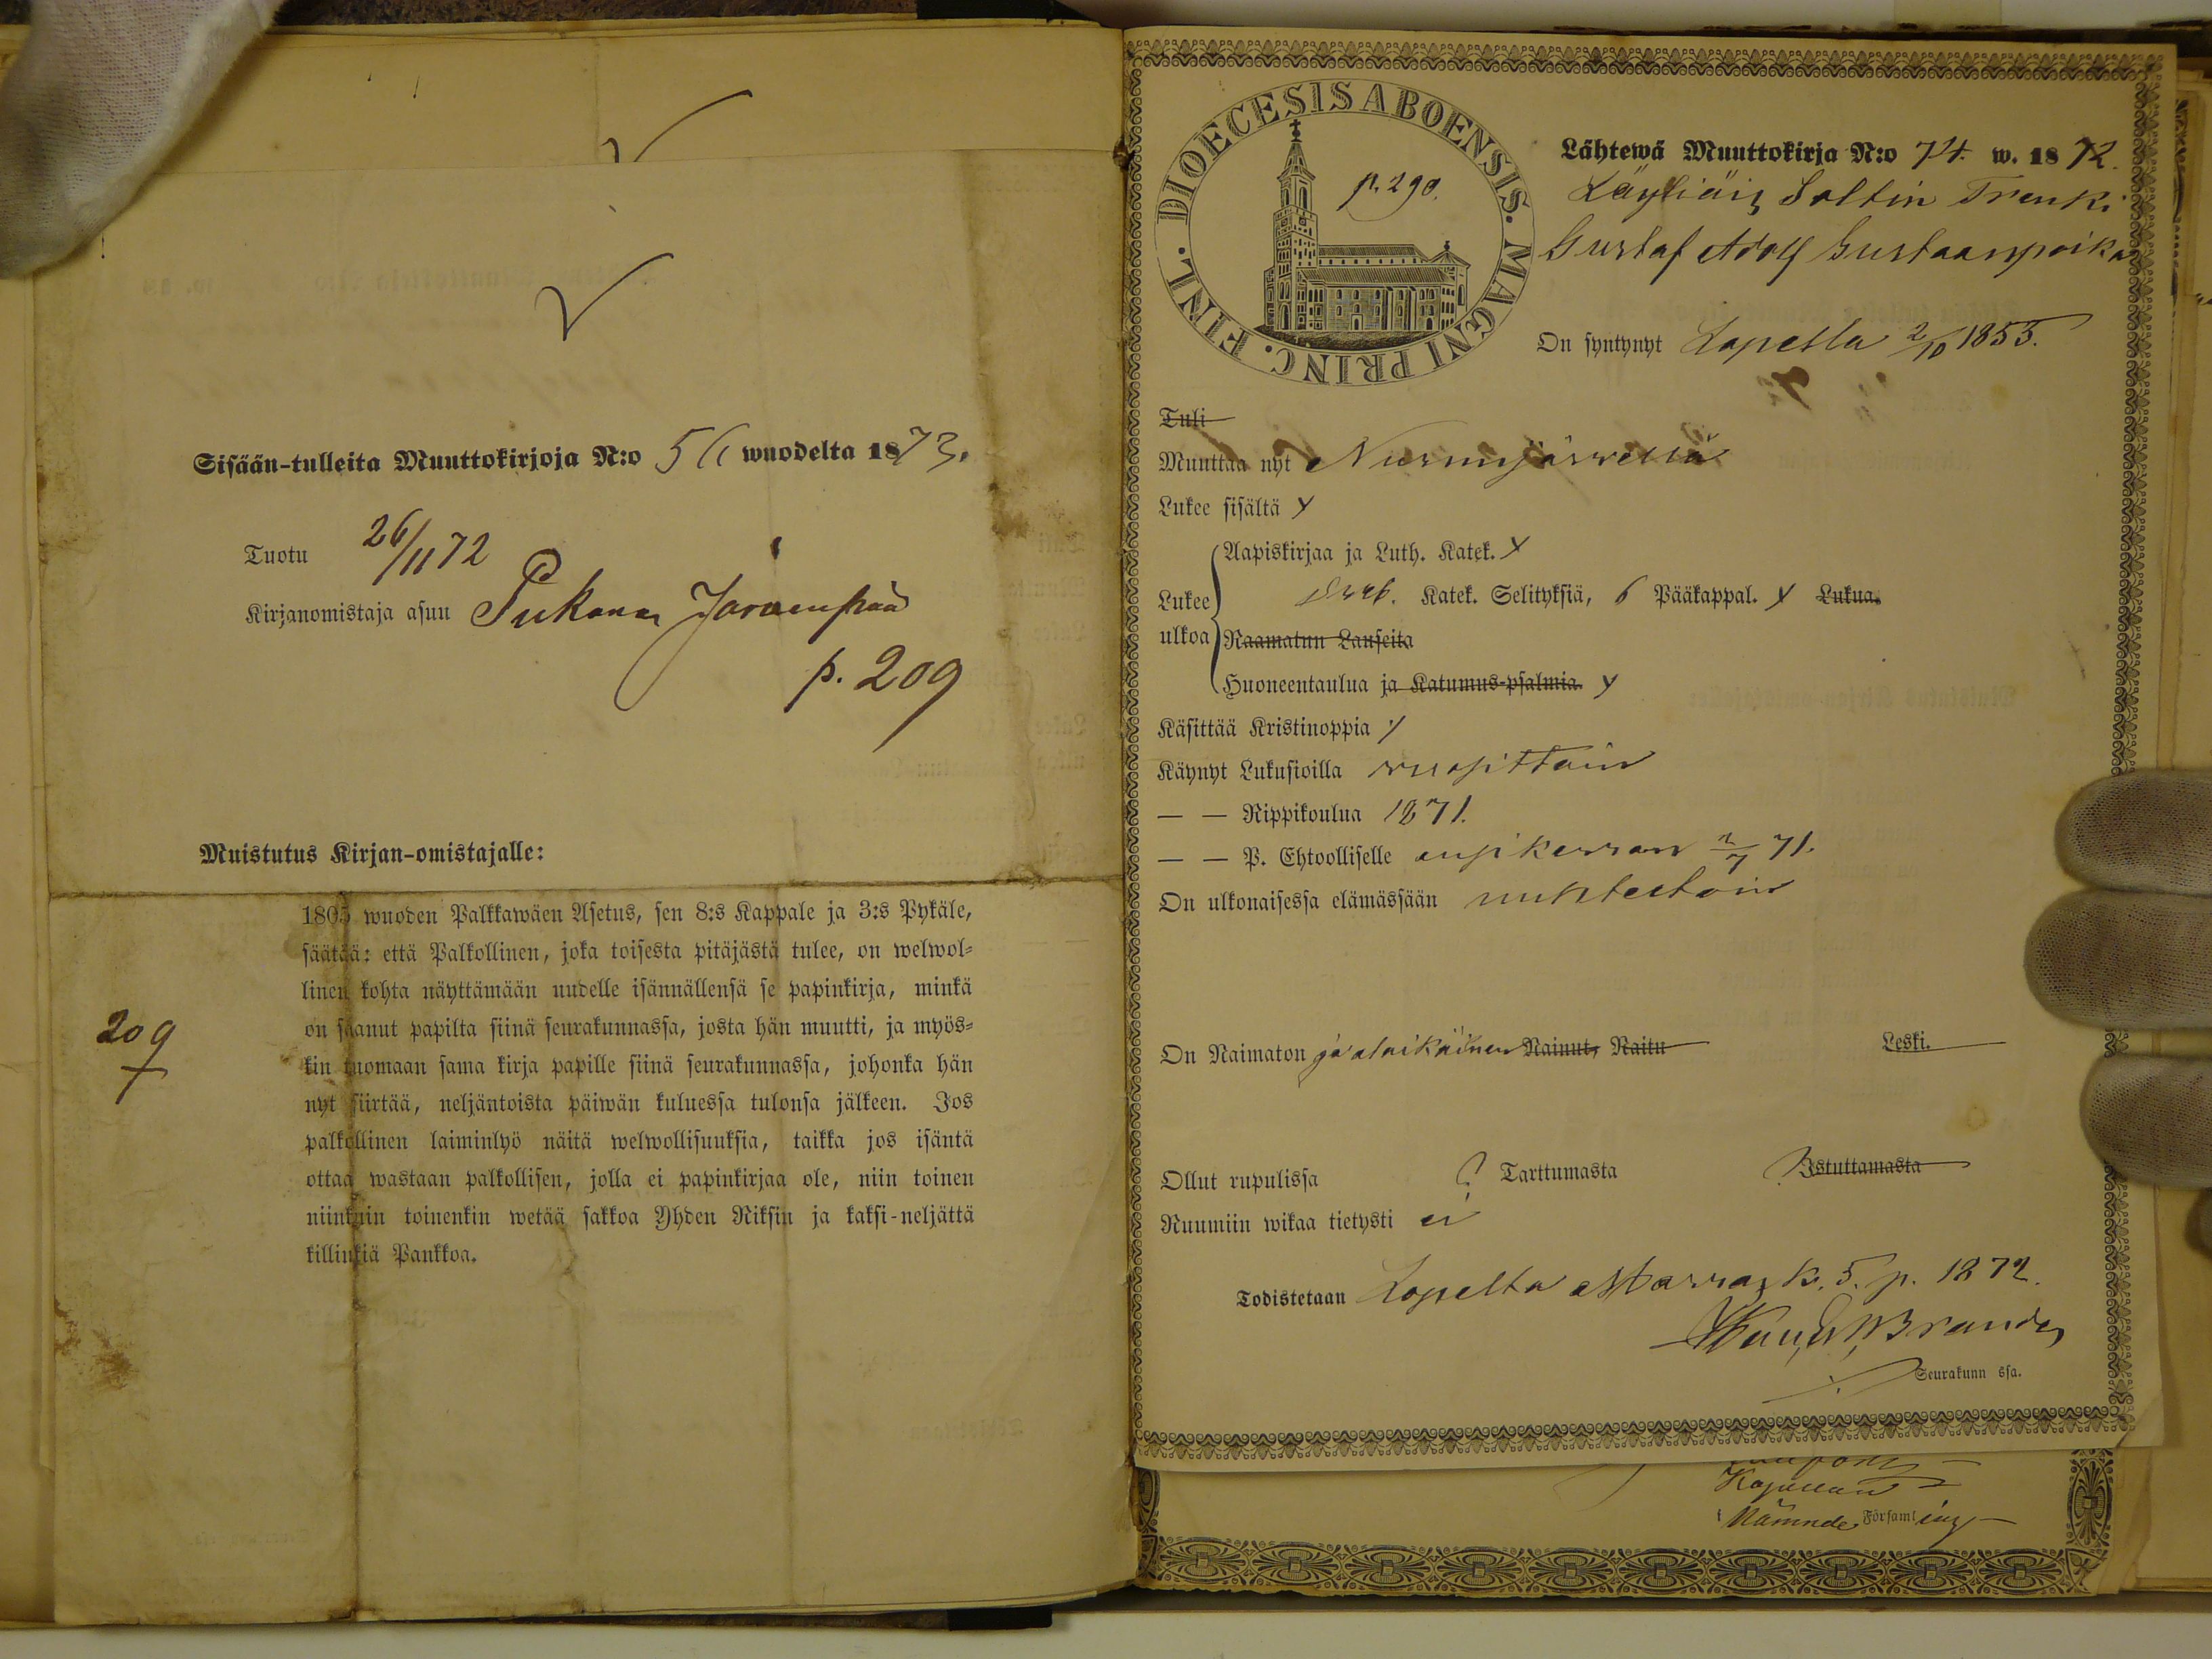 Sisään-tulleita Muuttokirjoja N:o 56 wuodelta 1873.
Tuotu 26/11 72
Kirjanomistaja asuu Pukana Järwenpää
p. 209
Muistutus Kirjan-omistajalle:
1805 wuoden Palkkawäen Asetus, sen 8:s Kappale ja 3:s Pykäle,
säätää: että Palkollinen, joka toisesta pitäjästä tulee, on welwol-
linen kohta näyttämään uudelle isännällensä se papinkirja, minkä
on saanut papilta siinä seurakunnassa, josta hän muutti, ja myös-
kin tuomaan sama kirja papille siinä seurakunnassa, johonka hän
nyt siirtää, neljäntoista päiwän kuluessa tulonsa jälkeen. Jos
palkollinen laiminlyö näitä welwollisuuksia, taikka jos isäntä
ottaa wastaan palkollisen, jolla ei papinkirjaa ole, niin toinen
niinkuin toinenkin wetää sakkoa Yhden Riksin ja kaksi-neljättä
killinkiä Pankkoa.
209
DIOECESIS ABOENSIS. MAGNI PRINC. FINL.
p. 290.
Lähtewä Muuttokirja N:o 74. w. 1872.
Läyliäis Soltin Trenki
Gustaf Adolf Gustaanpoika
On syntynyt Lopella 2/10 1853.
Tuli
Muuttaa nyt Nurmijärwellä
Lukee sisältä x
Lukee ulkoa
Aapiskirjaa ja Luth. Katek. x
Katek. Selityksiä, 6 Pääkappal. x Lukua.
Raamatun Lauseita
Huoneentaulua ja Katumus-psalmia. x
Käsittää Kristinoppia x
Käynyt Lukusioilla wuosittain
— — Rippikoulua 1871.
— — P. Ehtoolliselle ensikerran 2/7 71.
On ulkonaisessa elämässään nuhteetoin
On Naimaton ja alaikäinen Nainut, Naitu Leski.
Ollut rupulissa ? Tarttumasta Istuttamasta
Ruumiin wikaa tietysti ei
Todistetaan Lopelta Marrask. 5. p. 1872.
Brander
Seurakunn ssa.
Kapellan
i Nämnde Församling